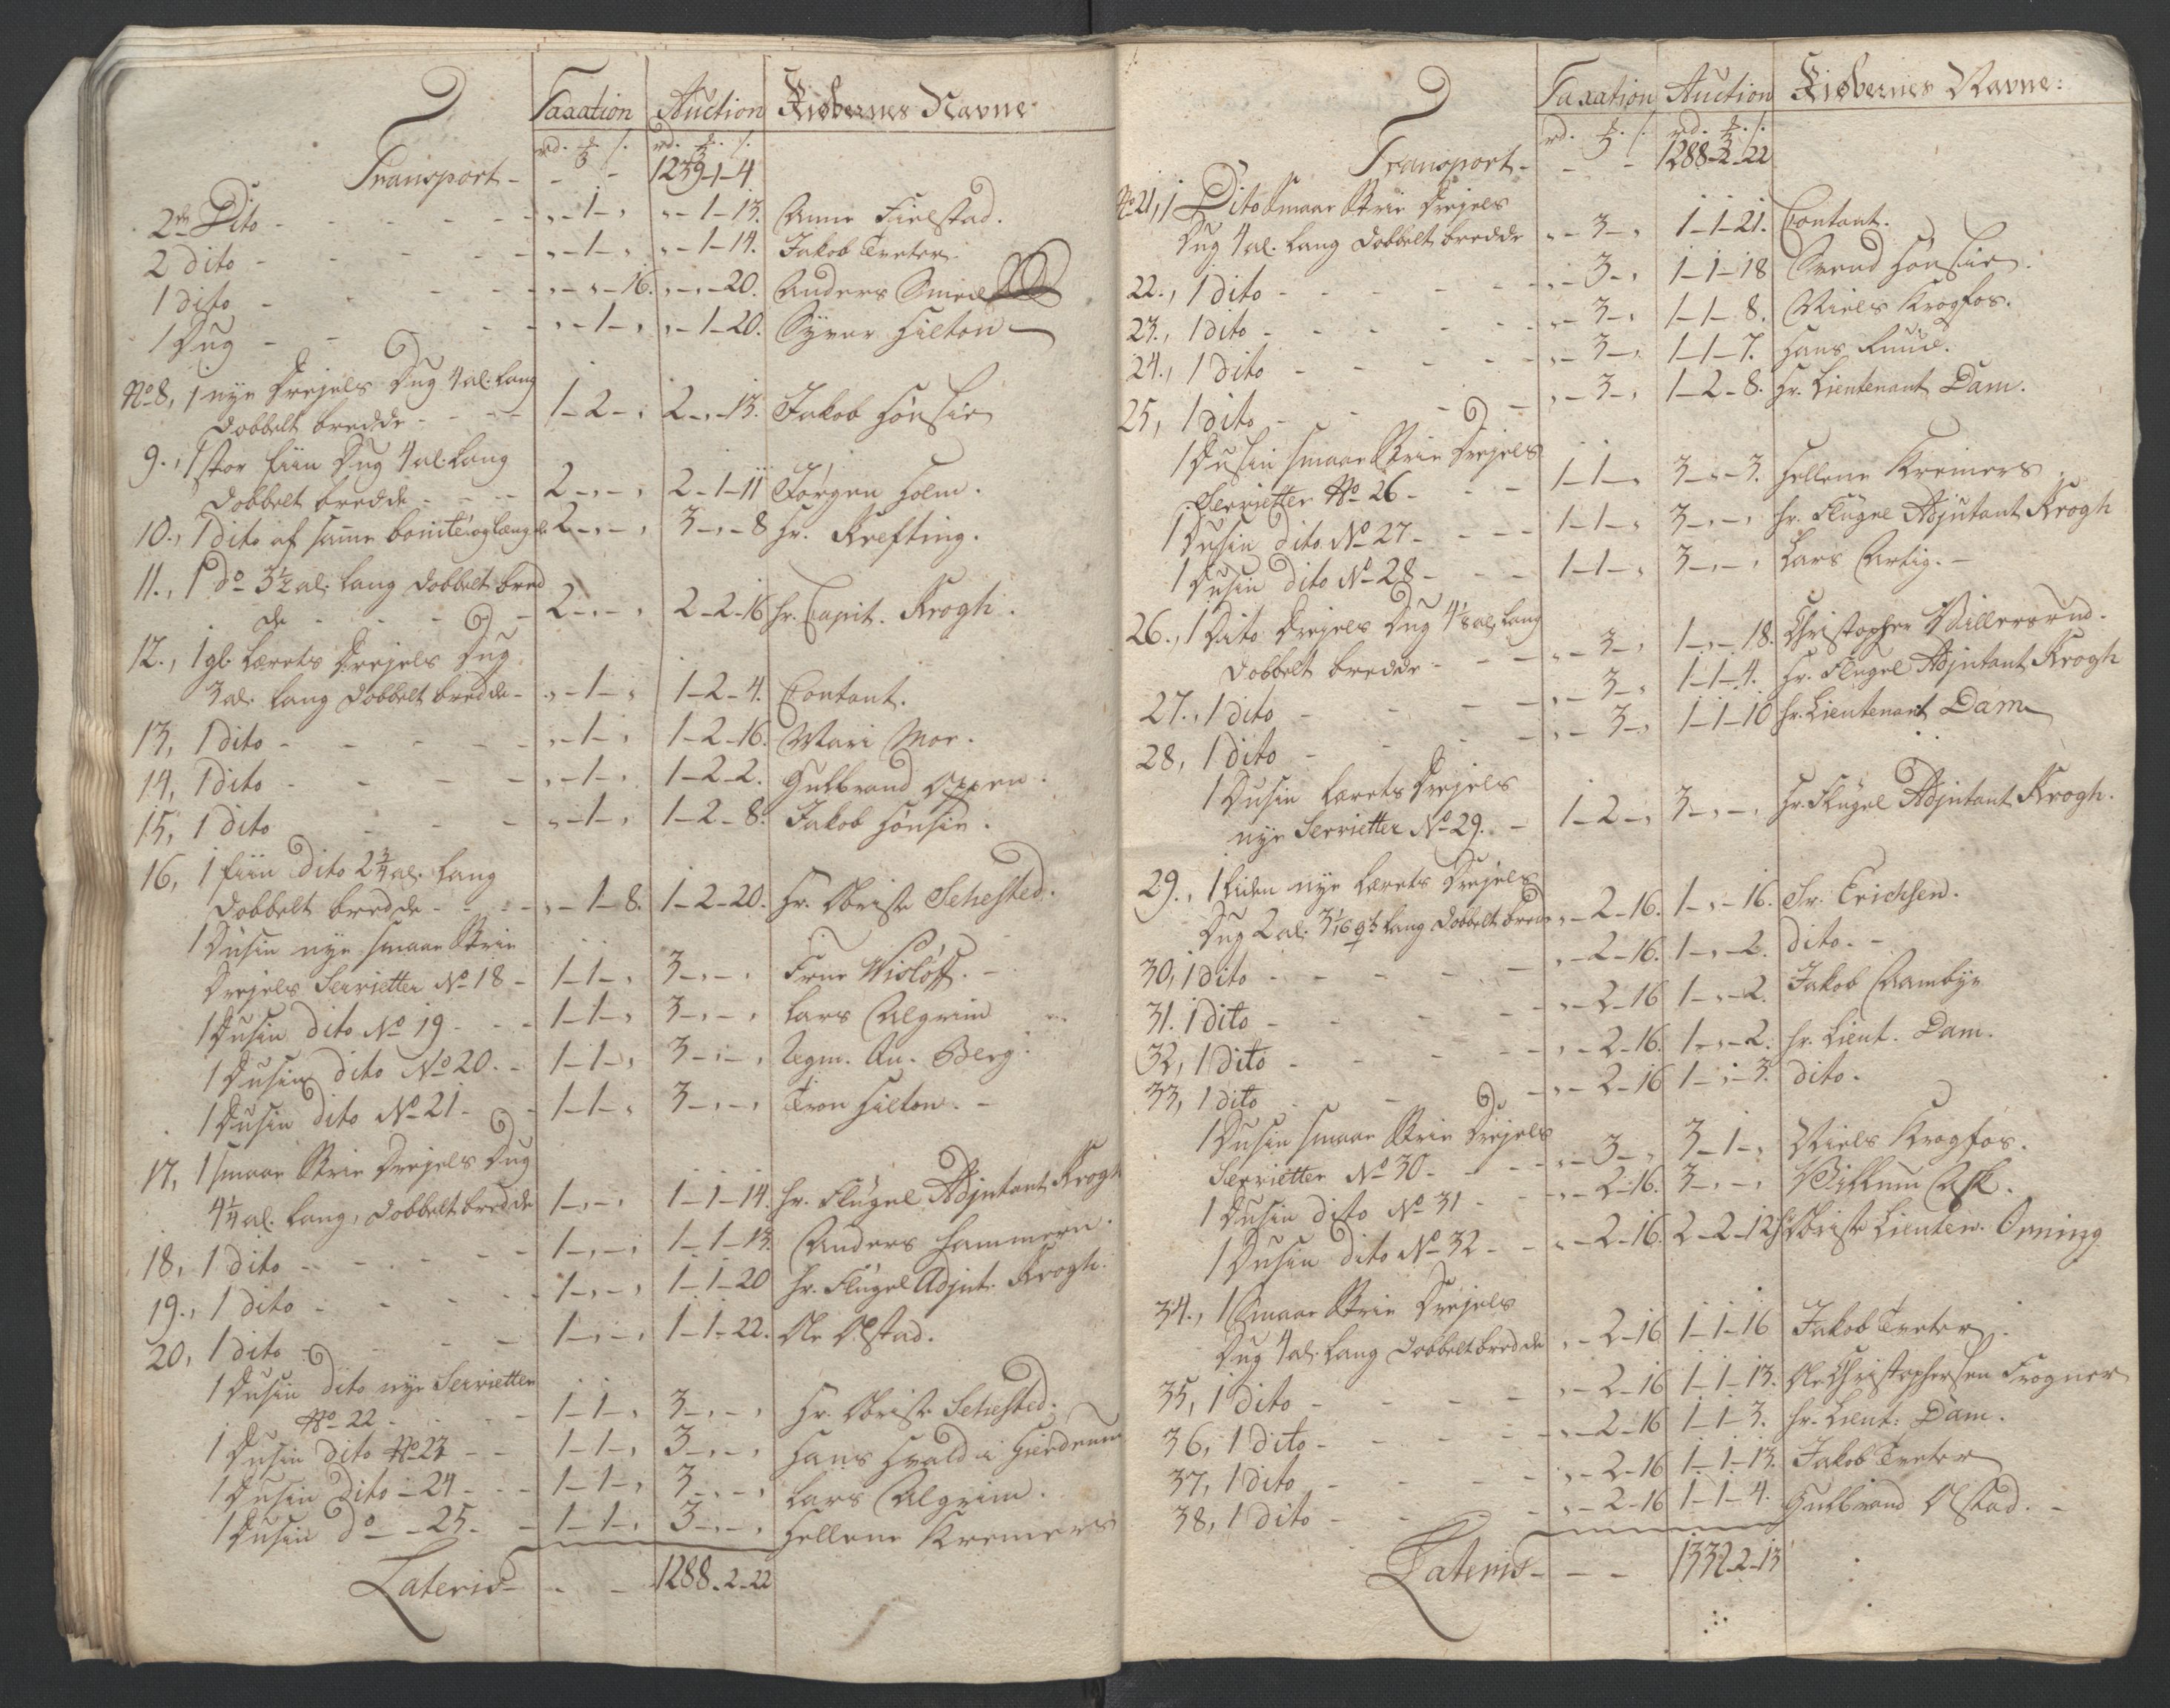 Taxation Auction Kiøbernes Navne
rd. ℔ /. rd. ℔ /.
Transport - - - 1239-1-4
2de Dito - - - „-1-„ „-1-13. Anne Fielstad.
2 dito - - - „-1-„ „-1-14. Jakob Tveter
1 dito - - - „-„-16. „-„-20. Anders Smed
1 Dug - - - „-1-„ „-1-20. Syver Hilton
No 8, 1 nye Drejels Dug 4 al: lang
dobbelt bredde - - - 1-2-„ 2-„-13. Jakob Hønsie
9., 1 stor fiin Dug 4 al: lang
dobbelt bredde - - - 2-„-„ 2-1-11 Jørgen Holm.
10., 1 dito af samme bonité og længde 2-„-„ 3-„-8 Hr. Krefting.
11., 1 do 3½ al: lang dobbelt bred
de - - - 2-„-„ 2-2-16 Hr. Capit. Krogh.
12., 1 gl. Lærets Drejels Dug
3 al. lang dobbelt bredde - „-1-„ 1-2-4. Contant.
13, 1 dito - - - „-1-„ 1-2-16. Mari Moe.
14, 1 dito - - - „-1-„ 1-2-2. Gulbrand Oppen.
15, 1 dito - - - „-1-„ 1-2-8. Jakob Hønsie.
16, 1 fiin dito 2¾ al. lang
dobbelt bredde - - - „-1-8. 1-2-20. Hr. Obriste Sehested.
1 Dusin nye smaae Strie
Drejels Servietter No 18 - 1-1-„ 3-„-„ Frue Wisløff. -
1 Dusin dito No 19 - - - 1-1-„ 3-„-„ Lars Algrim
1 Dusin dito No 20. - 1-1-„ 3-„-„ Legm. An. Berg.
1 Dusin dito No 21 - - 1-1-„ 3-„-„ Tron Hilton. -
17, 1 smaae Strie Drejels Dug
4¼ al. lang, dobbelt bredde 1-„-„ 1-1-14. Hr. Flügel Adjutant Krogh
18, 1 dito - - - 1-„-„ 1-1-13. Anders Hammern.
19., 1 dito - - - 1-„-„ 1-1-20 Hr. Flügel Adjut. Krogh.
20, 1 dito - - - 1-„-„ 1-1-22. Ole Olstad.
1 Dusin dito nye Servietter
No 22 - - - 1-1-„ 3-„-„ Hr. Obriste Sehested.
1 Dusin dito No 23 - - 1-1-„ 3-„-„ Hans Hvald i Gierdrum
1 Dusin dito - 24 - - - 1-1-„ 3-„-„ Lars Algrim.
1 Dusin do - 25 - - 1-1-„ 3-„-„ Hellene Kremers
Lateris - - - 1288-2-22
Taxation Auction Kiøbernes Navne:
rd. ℔ /. rd. ℔ /.
Transport - - - 1288-2-22
No 21, 1 Dito Smaae Strie Drejels
Dug 4 al. lang dobbelt bredde „-3-„ 1-1-21. Contant.
22., 1 dito - - - „-3-„ 1-1-18 Svend Hønsie.
23., 1 dito - - - „-3-„ 1-1-8. Niels Krogfos.
24., 1 dito - - - „-3-„ 1-1-7. Hans Ruud.
25, 1 dito - - - „-3-„ 1-2-8. Hr. Lieutenant Dam.
1 Dusin smaae Strie Drejels
Servietter No 26 - - - 1-1-„ 3-„-3. Hellene Kremers.
1 Dusin dito No 27 - - - 1-1-„ 3-„-„ Hr. Flügel Adjutant Krogh
1 Dusin dito No 28 - - - 1-1-„ 3-„-„ Lars Artig. -
26., 1 Dito Drejels Dug 4⅛ al. lang
dobbelt bredde - - - „-3-„ 1-„-18. Christopher Willersrud.
27., 1 dito - - - „-3-„ 1-1-4. Hr. Flügel Adjutant Krogh
28, 1 dito - - - „-3-„ 1-1-10 Hr. Lieutenant Dam
1 Dusin Lærets Drejels
nye Servietter No 29. - 1-2-„ 3-„-„ Hr. Flügel Adjutant Krogh.
29., 1 liden nye Lærets Drejels
Dug 2 al. lang dobbelt bredde „-2-16. 1-„-16. Sr. Erichsen.
30, 1 dito - - - „-2-16. 1-„-2. dito. -
31. 1 dito - - - „-2-16 1-„-2. Jakob Aambye
32, 1 dito - - - „-2-16. 1-„-2. Hr. Lieut. Dam.
33, 1 dito - - - „-2-16 1-„-3. dito.
1 Dusin smaae Strie Drejels
Servietter No 30 - - - „-3-„ 3-1-„ Niels Krogfos.
1 Dusin dito No 31 - - „-2-16. 3-„-„ Willum Ask.
1 Dusin dito No 32 - - „-2-16. 2-2-12 Hr. Obriste Lieuten. Orning
34., 1 Smaae Strie Drejels
Dug 4 al. lang dobbelt bredde „-2-16 1-1-16 Jakob Tveter.
35, 1 dito - - - „-2-16 1-1-13. Ole Christophersen Frogner
36, 1 dito - - - „-2-16 1-1-3. Hr. Lieut: Dam.
37, 1 dito - - - „-2-16 1-1-13. Jakob Tveter
38, 1 dito - - - „-2-16 1-1-4. Gulbrand Olstad. -
Lateris - - - 1332-2-13